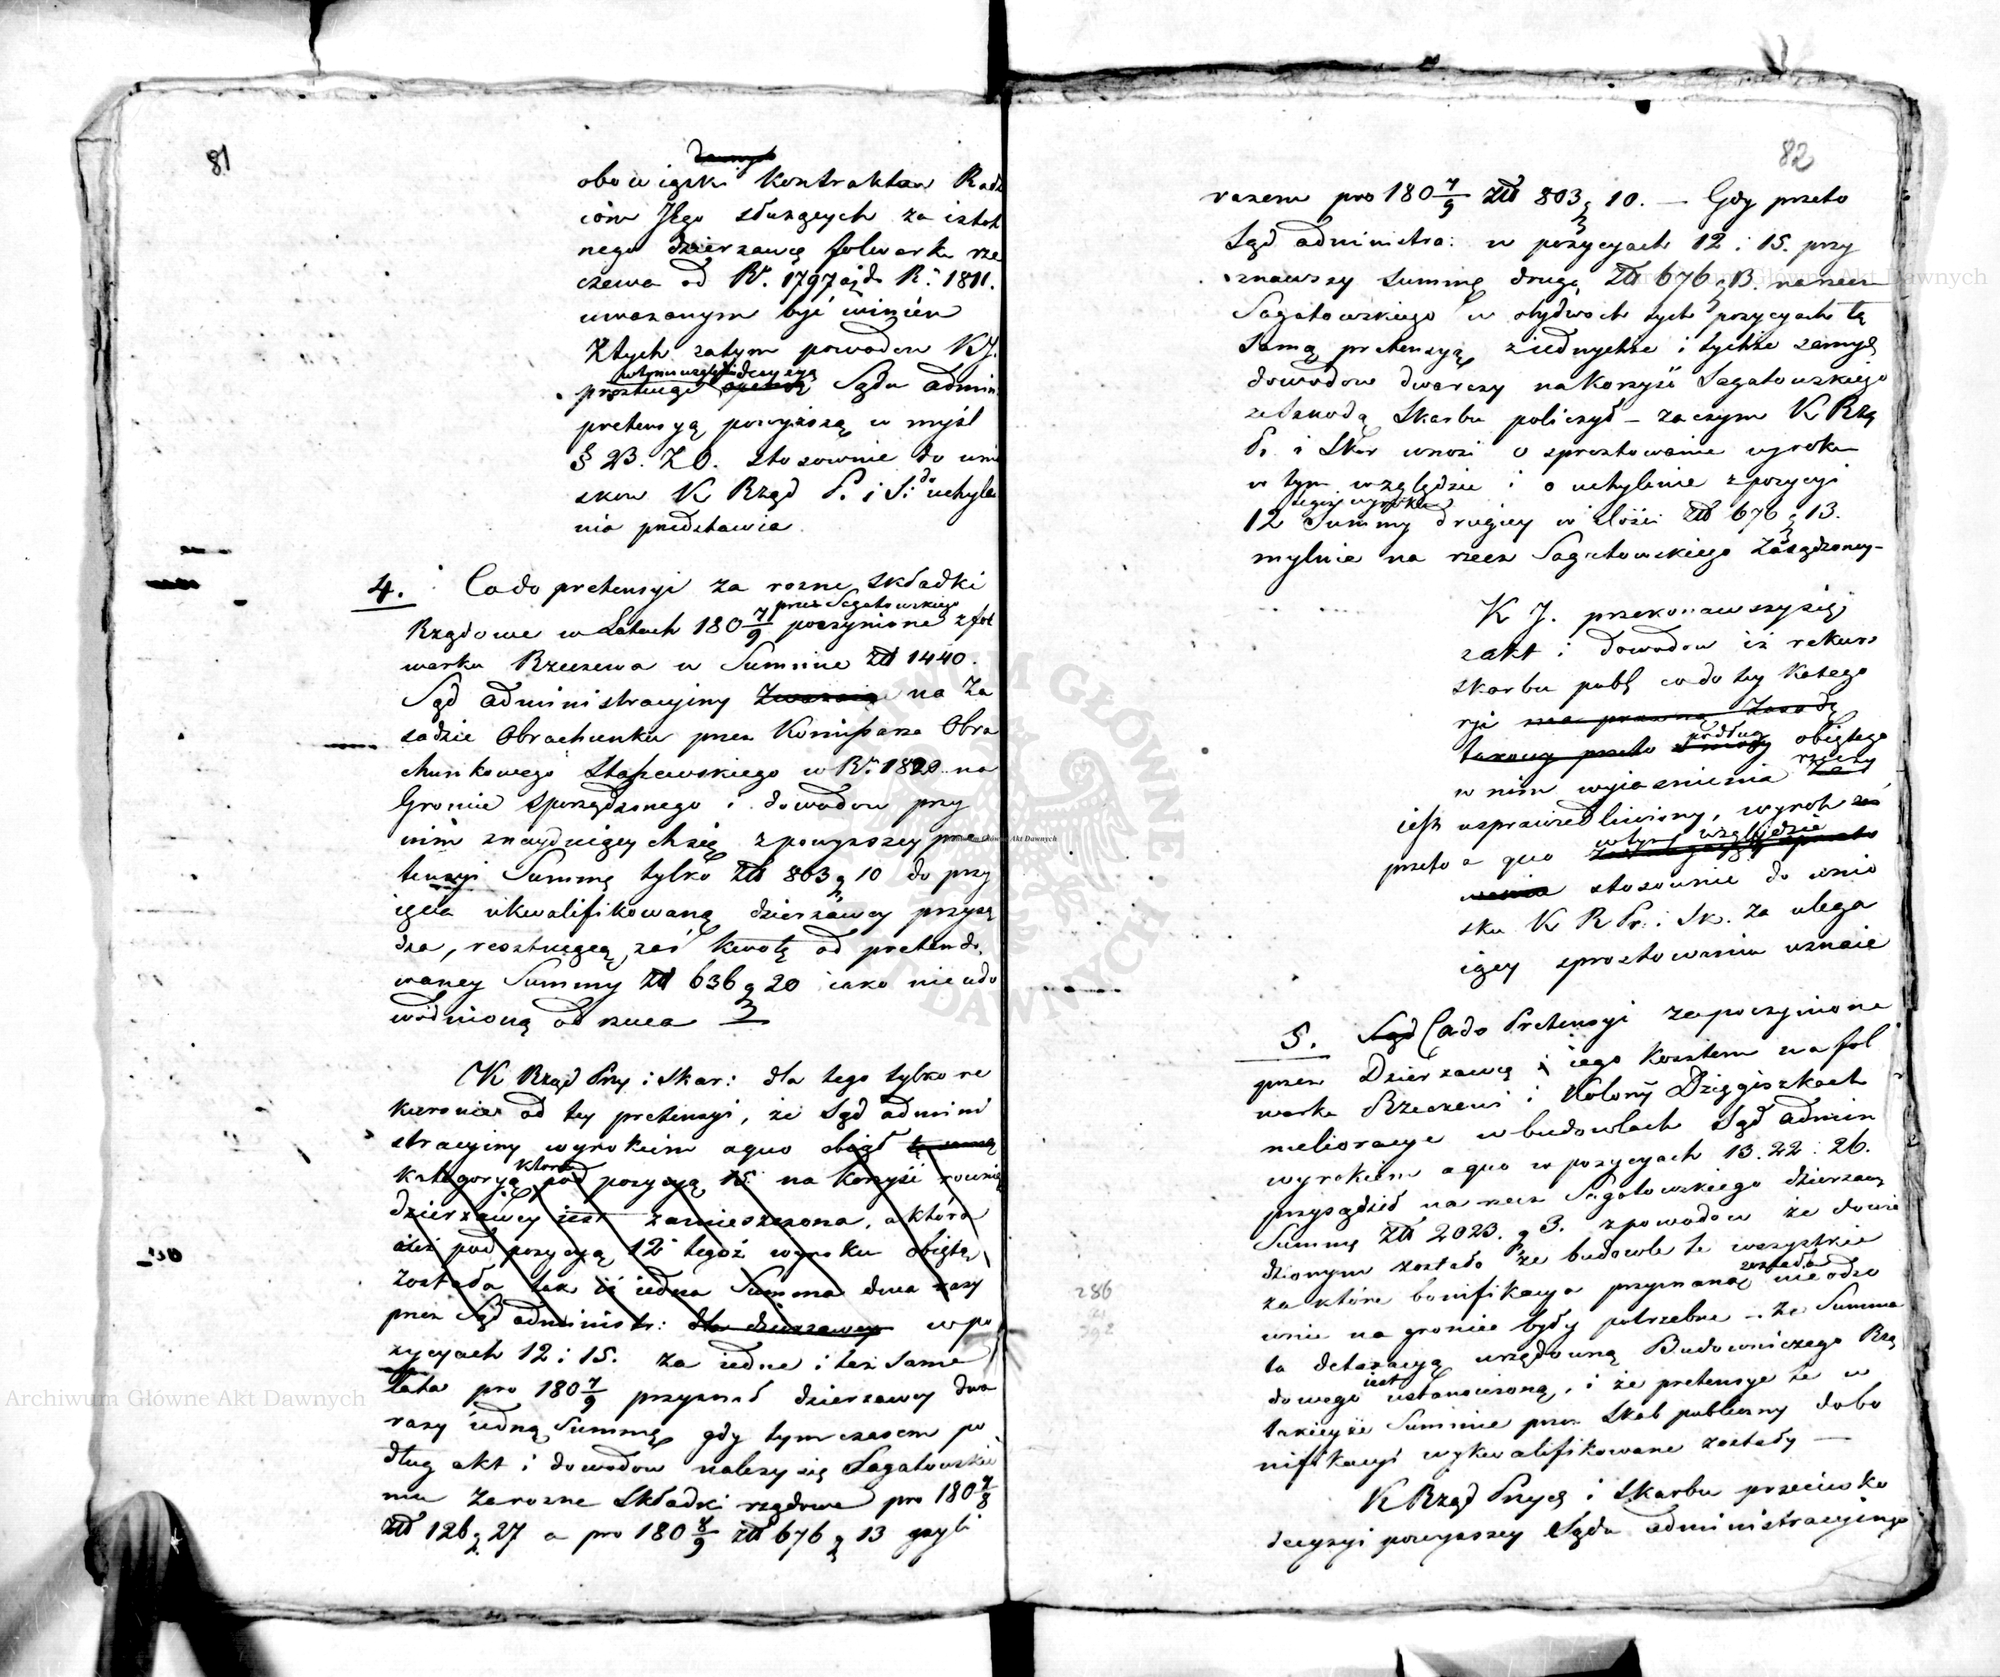 81
obowiązki kontraktem Rodzi
ców Jego służących za istot
nego dzierżawcę folwarku rze
czewa od R. 1797 aż do R. 1811.
uważanym być winien
Z tych zatym powodów K J.
w tym względzie decyzyą
prostuiąc Sądu admin.
pretensyą powyższą w myśl
§ 23. Z O. stosownie do wnio
sków K Rząd P. i S: do uchyle
nia przedstawia.
4. Co do pretensyi za rozne składki
przez Sagatowskiego
Rządowe w Latach 180 7/9 poczynione z fol
warku Rzeczewa w Summie Zł 1440.
Sąd administracyiny na Za
sadzie Obrachunku przez Kommissarza Obra
chunkowego Staszewskiego w R. 1820 na
Gruncie sporządzonego i dowodow przy
nim znayduiących się z powyzszey pre
tensyi Summę tylko Zł 803 g 10 do przy
ięcia ukwalifikowaną dzierżawcy przysą
dza, resztuiącą zaś kwotę od pretendo
waney Summy Zł 636 g 20 iako nieudo
wodnioną odrzuca
K Rząd Przy i Skar: dla tego tylko re
kurowie od tey pretensyi, że Sąd admini
stracyiny wyrokiem a quo obiął tę samą
która
kategoryą pod pozycyą 15 na korzyść równie
dzierżawcy iest zamieszczona, a która
iuż pod pozycyą 12 tegoż wyroku obiętą
została tak iż iedna Summa dwa razy
przez Sąd administr: dla dzierżawcy w po
zycyach 12 i 15. za iedne i też same
lata pro 180 7/9 przyznał dzierżawcy dwa
razy iedną Summę gdy tymczasem po
dług akt i dowodow należy się Sagatowskie
mu za rozne składki rządowe pro 180 7/8
Zł 126 g 27 a pro 180 8/9 Zł 676 g 13 czyli
82
razem pro 180 7/9 Zł 803 g 10. — Gdy przeto
Sąd administra: w pozycyach 12 i 15. przy
znawszy Summę drugą Zł 676 g 13. na rzecz
Sagatowskiego w obydwoch tych pozycyach tę
samą pretensyą z iednychże i tychże samych
dowodow dwa razy na korzyść Sagatowskiego
ze szkodą Skarbu policzył — zaczym K Rzą
P. i Skar wnosi o sprostowanie wyroku
w tym względzie i o uchylenie z pozycyi
tegoż wyroku
12 Summy drugiey w ilości Zł 676 g 13.
mylnie na rzecz Sagatowskiego Zasądzoney —
K J. przekonawszy się
z akt i dowodow iż rekurs
skarbu publ co do tey katego
ryi
podług obiętego
w nim wyiaśnienia rzeczy
iest usprawiedliwiony, wyrok
w tym względzie
przeto a quo
stosownie do wnio
sku K R Pr. i Sk. za ulega
iący sprostowaniu uznaie
5. Co do Pretensyi za poczynione
przez Dzierżawcę i iego kosztem na fol
warku Rzeczewi i Kolonÿ Dzięgiszkach
melioracye w budowlach Sąd admin
wyrokiem a quo w pozycyach 13. 22 i 26.
przysądził na rzecz Sagatowskiego dzierżawcy
Summę Zł 2023. g 3. z powodow że dowie
dzionym zostało że budowle te wszystkie
została
za które bonifikacya przyznaną nieodzo
wnie na gruncie były potrzebne — że Summa
ta detaxacyą urzędową Budowniczego Rzą
iest
dowego ustanowioną, i że pretensye te w
takieyże Summie przez Skarb publiczny do bo
nifikacyi wykwalifikowane zostały —
K Rząd Przych i Skarbu przeciwko
decyzyi powyższey Sądu administracyinego
286
Archiwum Główne Akt Dawnych
Archiwum Główne Akt Dawnych
Archiwum Główne Akt Dawnych
ARCHIWUM GŁÓWNE AKT DAWNYCH